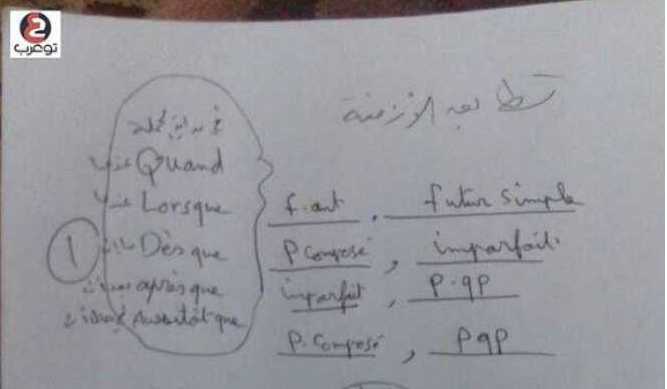 توعرب
تطابع الأزمنة
في بداية الجملة
عندما Quand
عندما Lorsque
f. ant , futur simple
1
Dès que
P composé , imparfait
après que
imparfait , P.qp
Aussitôt que
P. Composé , pqp